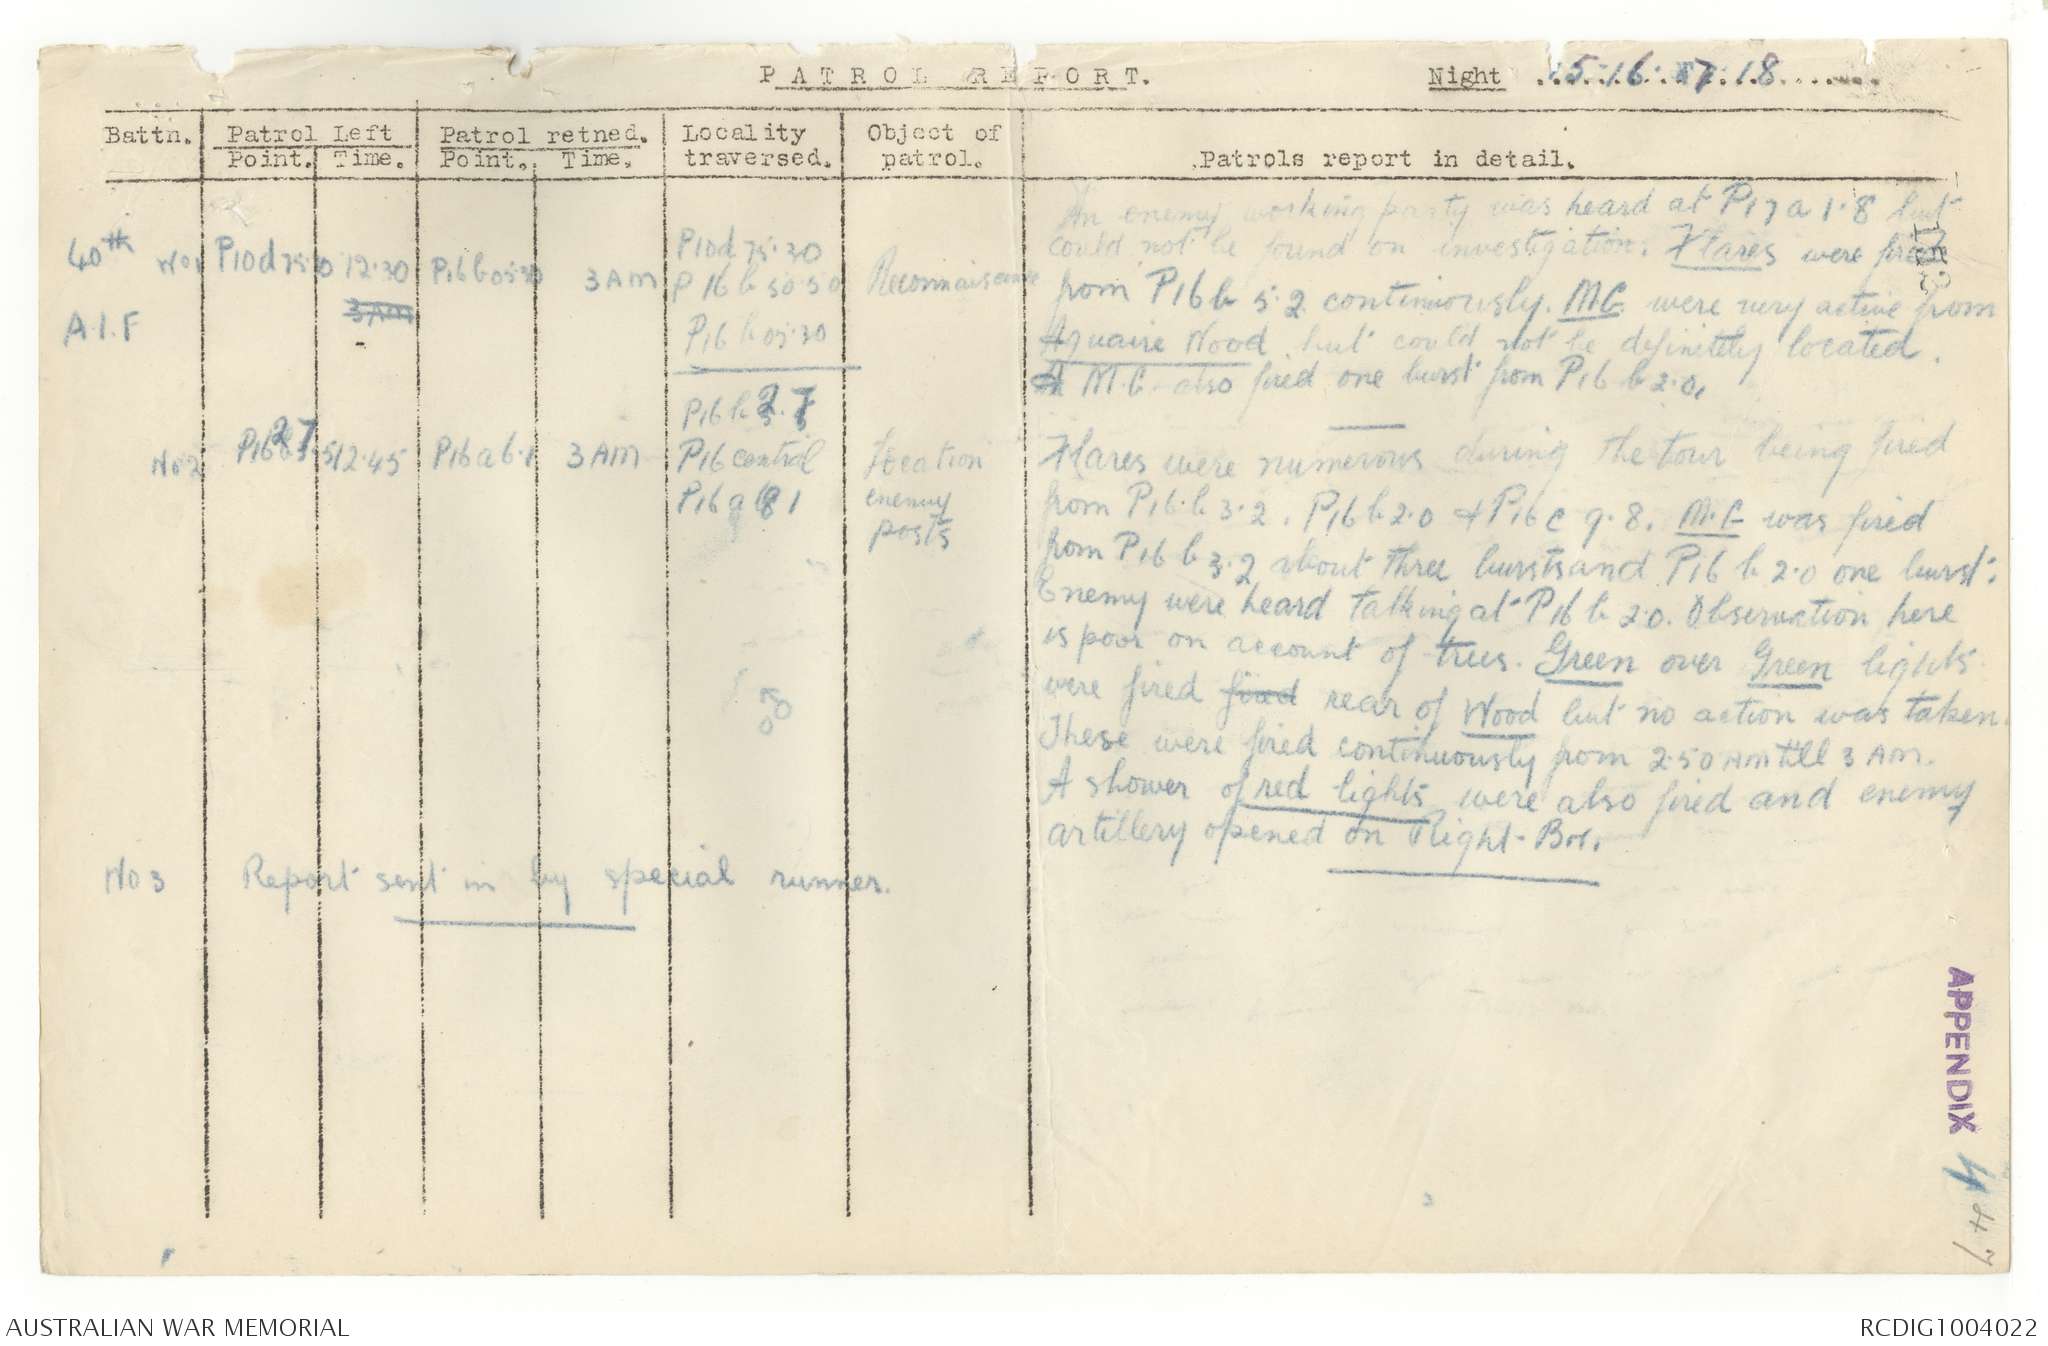 PATROL REPORT.
Night 15.16.7.18
Battn. Patrol Left Patrol retned. Locality Object of
Point. Time. Point. Time. traversed. patrol. Patrols report in detail.
40th No 1 P10d75.30 12.30 P16b05.30 3 AM
3 AM
A.I.F
P10d75.30
P16b50.50
P16b05.30
Reconnaisance
An enemy working party was heard at P17a1.8 but
could not be found on investigation. Flares were fired
from P16b5.2 continuously. M.G. were very active from
Aquaire Wood but could not be definitely located.
A M.G. also fired one burst from P16b2.0.
No 2 12.45 P16a6.1 3 AM
P16b2.7
P16 central
P16a 1
Location
enemy
posts
Flares were numerous during the tour being fired
from P16.b3.2, P16b2.0 & P16c9.8. M.G. was fired
from P16b3.2 about three bursts and P16b2.0 one burst.
Enemy were heard talking at P16b2.0. Observation here
is poor on account of trees. Green over Green lights
were fired fired rear of Wood but no action was taken.
These were fired continuously from 2.50 AM till 3 AM.
A shower of red lights were also fired and enemy
artillery opened on Right Bn.
No 3 Report sent in by special runner.
APPENDIX 4
AUSTRALIAN WAR MEMORIAL
RCDIG1004022